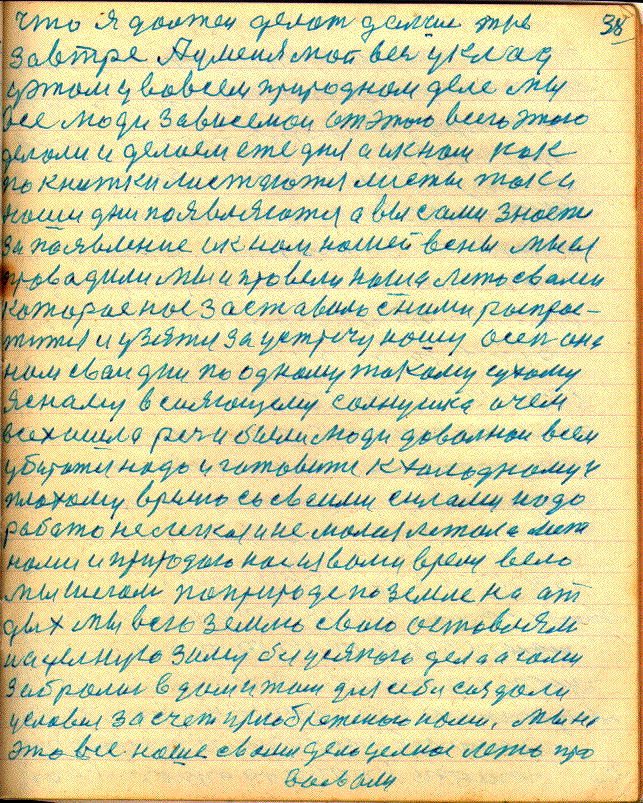 что я должен делат далше про 38
завтре А у меня мой весь уклад
у этом у во всем природном деле мы
все люди зависемои от этого всего этого
делоли и делоем еже дня а и к ном как
по книтки листаютя листы так и
наши дни появляютя а вы сами знаете
за появление и к ном нашей весны мы ея
провадили мы и провели наша лето своми
которае нос заставило с ними роспрос-
титя и узяти за устречу нашу осен она
ном сваи дни по одному такому сухому
ясному всияющему солнушка о чем
всех ошла речи были люди доволнои всем
убирати надо и готовити к холодному и
плохому время со своими силами надо
работо не легкоя и не малоя летола
ноши и природою нас из вами время вело
мы шагали по природе по земле на от
дых мы всю землю свою оставляем
на целную зиму без усякого дела а сами
забролис в дом и там для себя создоли
условия за счет приобретеного нами, мы на
это все наше своми дело целное лето про
воевали